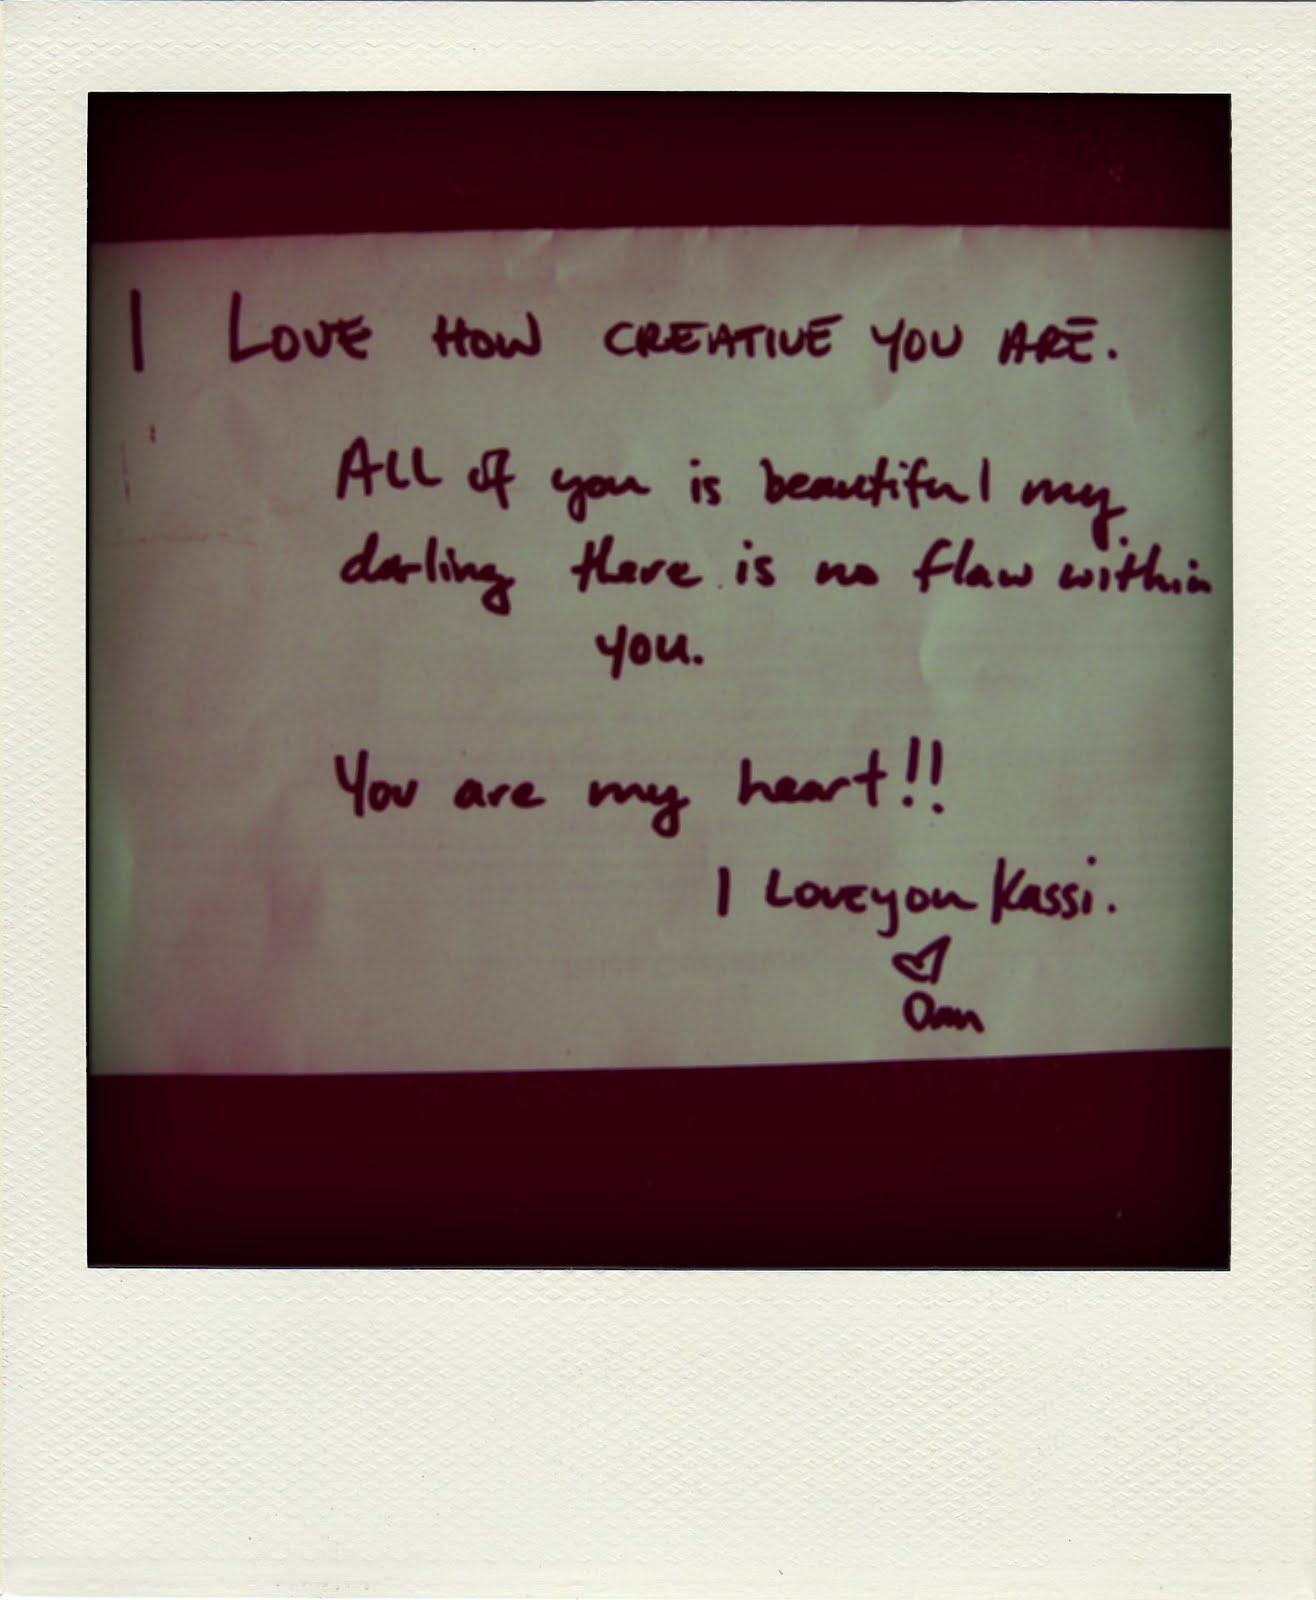 I LOVE HOW CREATIVE YOU ARE.
All of you is beautiful my
darling there is no flaw within
you.
You are my heart!!
I Love you Kassi.
Dan